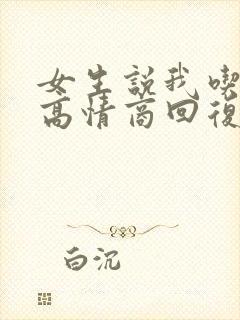 女生説我喫
高情商回復
白沉